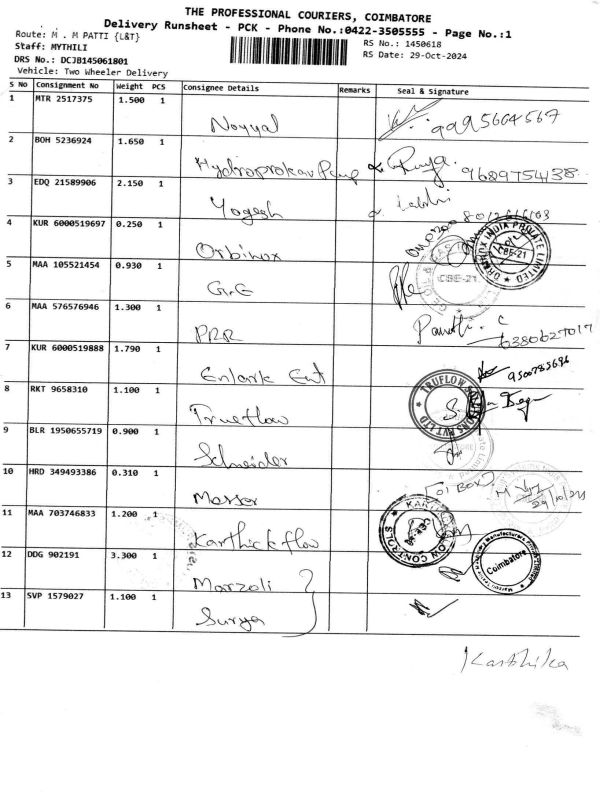 THE PROFESSIONAL COURIERS, COIMBATORE
Delivery Runsheet - PCK - Phone No.:0422-3505555 - Page No.:1
Route: M . M PATTI {L&T}
RS No: 1450618
Staff: MYTHILI
RS Date: 29-Oct-2024
DRS No: DCJB145061801
Vehicle: Two Wheeler Delivery
S No Consignment No Weight PCS Consignee Details Remarks Seal & Signature
1 MTR 2517375 1.500 1 Noyyal 9995604567
2 BOH 5236924 1.650 1 Hydroprokav Pump 9689754438
3 EDQ 21589906 2.150 1 Yogesh
4 KUR 6000519697 0.250 1 Orbinox CBE-21
5 MAA 105521454 0.930 1 G.E CBE-21
6 MAA 576576946 1.300 1 PRR 6380627017
7 KUR 6000519888 1.790 1 Enlark Ent 9500785696
8 RKT 9658310 1.100 1 Trueflow
9 BLR 1950655719 0.900 1 Schneider
10 HRD 349493386 0.310 1 Messer [01 BOX] 29/10/24
11 MAA 703746833 1.200 1 Karthick flow
12 DDG 902191 3.300 1 Marzoli Coimbatore
13 SVP 1579027 1.100 1 Surya
Karthika